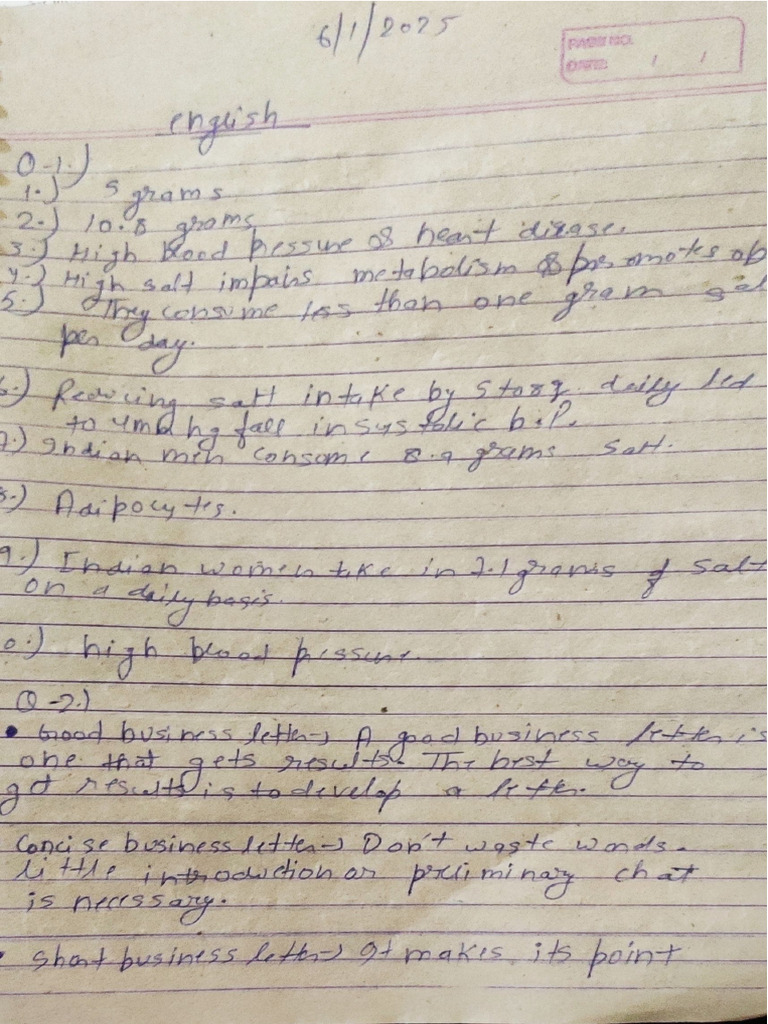 6/1/2025
PAGE NO.
DATE: / /
english
Q-1.)
1.) 5 grams
2.) 10.8 grams
3.) High blood pressure & heart disease.
4.) High salt impairs metabolism & promotes ob
5.) They consume less than one gram sal
per day.
6.) Reducing salt intake by 5 to 8 g. daily led
to 4mm hg fall in systolic b.P.
7.) Indian men consome 8.9 grams salt.
8.) Adipocytes.
9.) Indian women take in 7.1 grams of salt
on a daily basis.
0.) high blood pressure.
Q-2.)
• Good business letter → A good business letter is
one that gets results. The best way to
get results is to develop a letter.
Concise business letter → Don't waste words.
little introduction or preliminary chat
is necessary.
• Short business letter → It makes its point